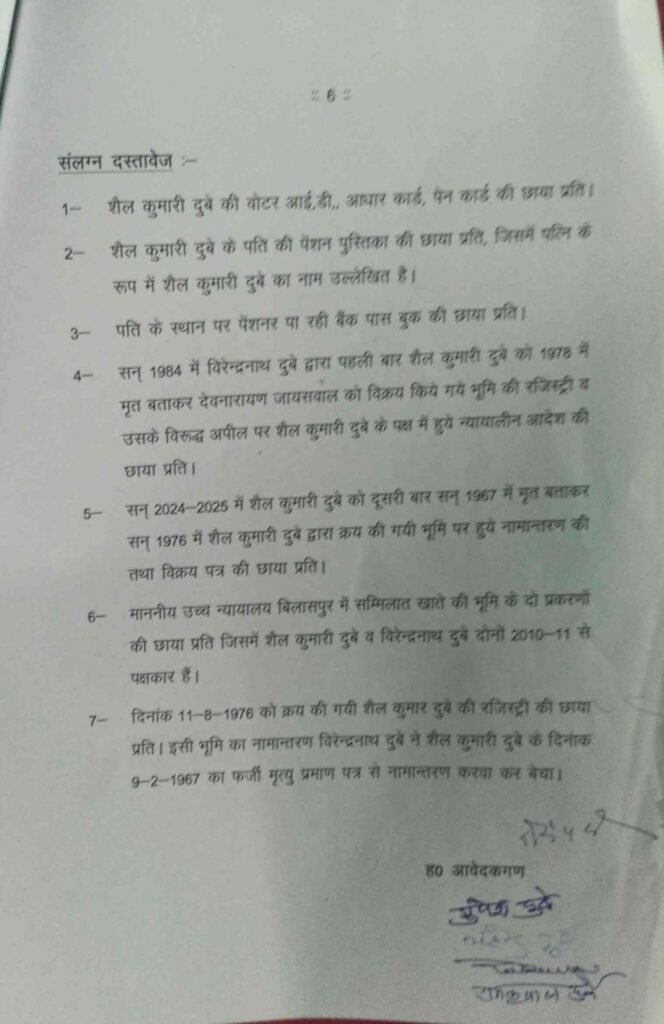 :: 6 ::
संलग्न दस्तावेज :–
1– शैल कुमारी दुबे की वोटर आई.डी., आधार कार्ड, पेन कार्ड की छाया प्रति।
2– शैल कुमारी दुबे के पति की पेंशन पुस्तिका की छाया प्रति, जिसमें पत्नि के
रूप में शैल कुमारी दुबे का नाम उल्लेखित है।
3– पति के स्थान पर पेंशनर पा रही बैंक पास बुक की छाया प्रति।
4– सन् 1984 में विरेन्द्रनाथ दुबे द्वारा पहली बार शैल कुमारी दुबे को 1978 में
मृत बताकर देवनारायण जायसवाल को विक्रय किये गये भूमि की रजिस्ट्री व
उसके विरूद्ध अपील पर शैल कुमारी दुबे के पक्ष में हुये न्यायालीन आदेश की
छाया प्रति।
5– सन् 2024–2025 में शैल कुमारी दुबे को दूसरी बार सन् 1967 में मृत बताकर
सन् 1976 में शैल कुमारी दुबे द्वारा क्रय की गयी भूमि पर हुये नामान्तरण की
तथा विक्रय पत्र की छाया प्रति।
6– माननीय उच्च न्यायालय बिलासपुर में सम्मिलात खाते की भूमि के दो प्रकरणों
की छाया प्रति जिसमें शैल कुमारी दुबे व विरेन्द्रनाथ दुबे दोनों 2010–11 से
पक्षकार हैं।
7– दिनांक 11–8–1976 को क्रय की गयी शैल कुमार दुबे की रजिस्ट्री की छाया
प्रति। इसी भूमि का नामान्तरण विरेन्द्रनाथ दुबे ने शैल कुमारी दुबे के दिनांक
9–2–1967 का फर्जी मृत्यु प्रमाण पत्र से नामान्तरण करवा कर बेचा।
ह0 आवेदकगण
दुबे
रामकृपाल दुबे